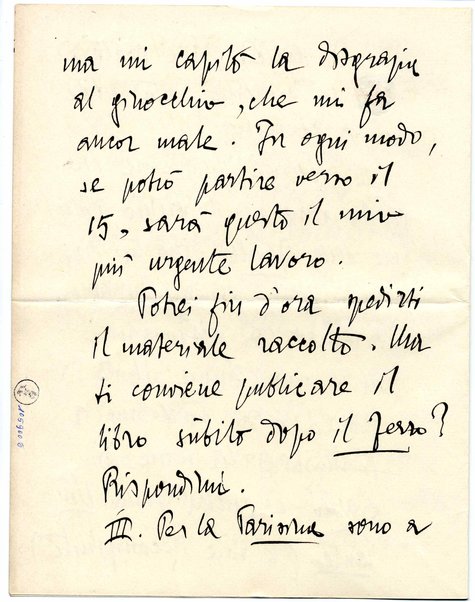 ma mi capitò la disgrazia
al ginocchio, che mi fa
ancor male. In ogni modo,
se potrò partire verso il
15, sarà questo il mio
più urgente lavoro.
Potrei fin d'ora spedirti
il materiale raccolto. Ma
ti conviene publicare il
libro sùbito dopo il ferro?
Rispondimi.
III. Per la Parisina sono a
105900 8